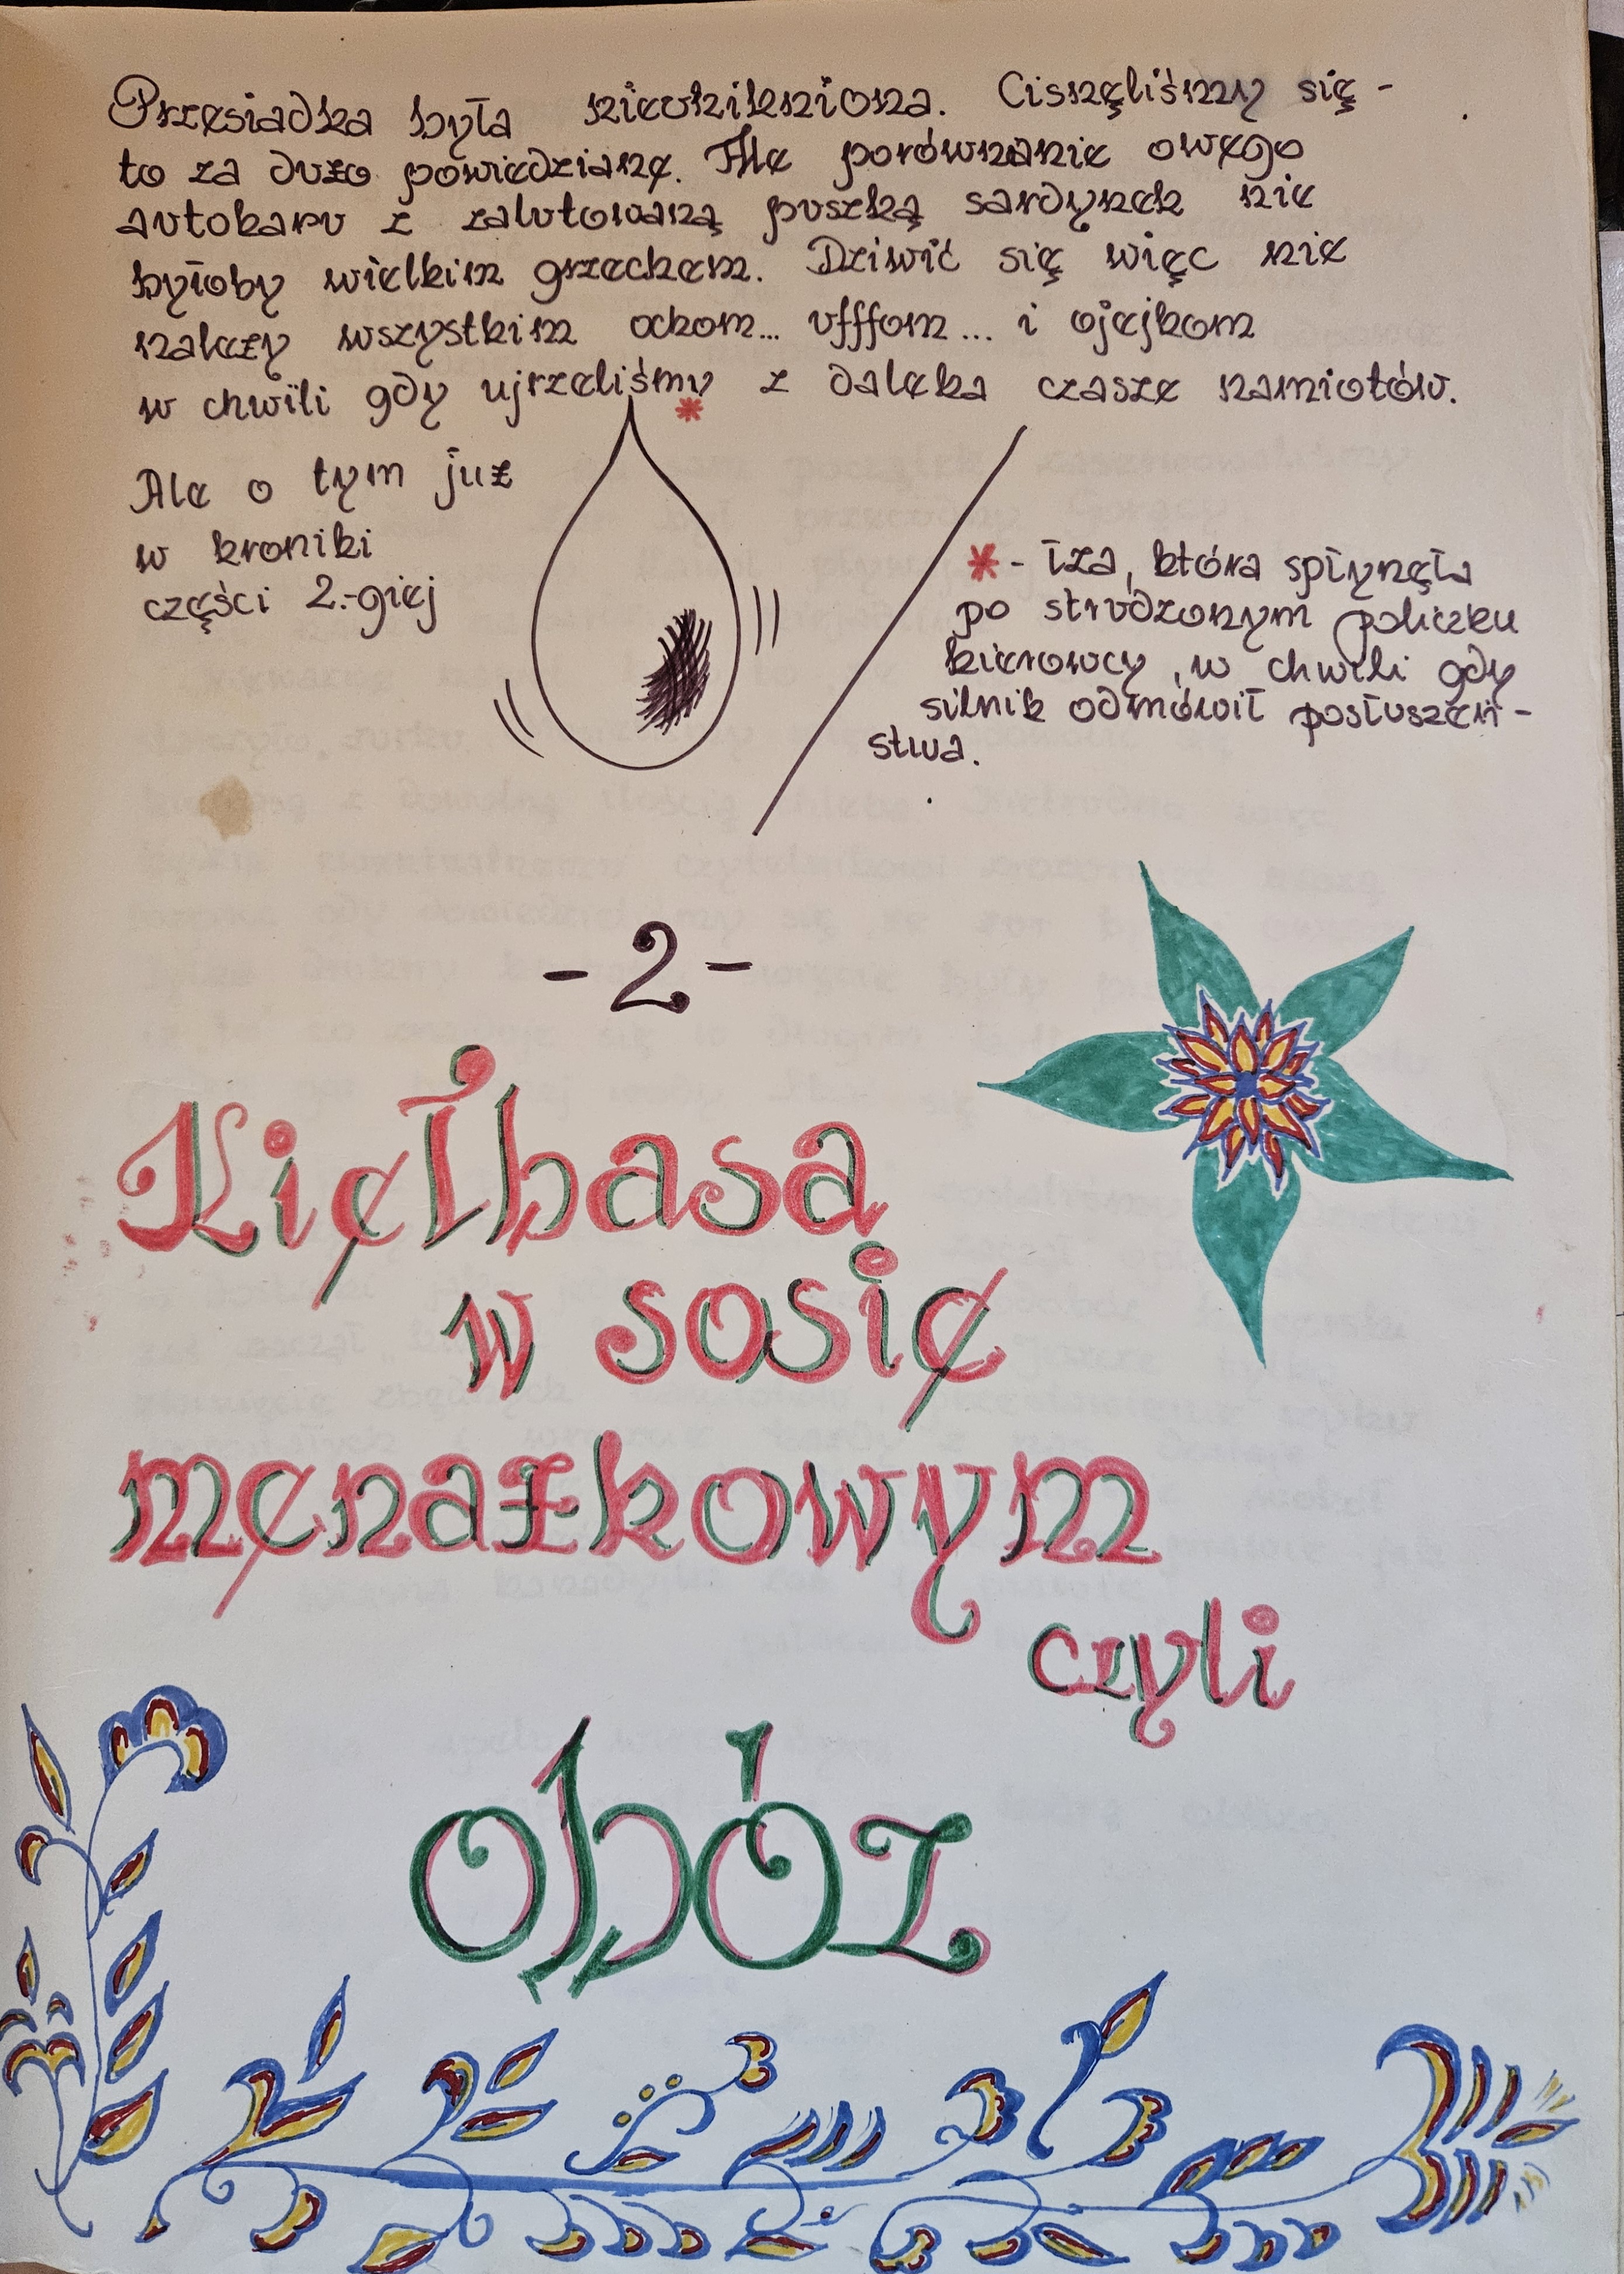 Przesiadka była nieunikniona. Cisnęliśmy się -
to za dużo powiedziane. Ale porównanie owego
autokaru z zalutowaną puszką sardynek nie
byłoby wielkim grzechem. Dziwić się więc nie
należy wszystkim ochom... ufffom... i ojejkom
w chwili gdy ujrzeliśmy z daleka czasze namiotów.
*
Ale o tym już
w kroniki
części 2.-giej
* - łza, która spłynęła
po strudzonym policzku
kierowcy, w chwili gdy
silnik odmówił posłuszeń-
stwa.
- 2 -
Kiełbasa
w sosie
menażkowym
czyli
obóz